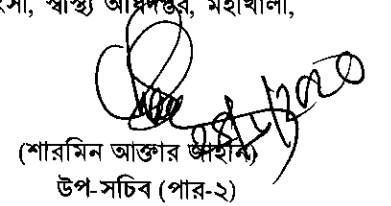 স্বাস্থ্য অধিদপ্তর, মহাখালী,
(শারমিন আক্তার জাহান)
উপ-সচিব (পার-২)